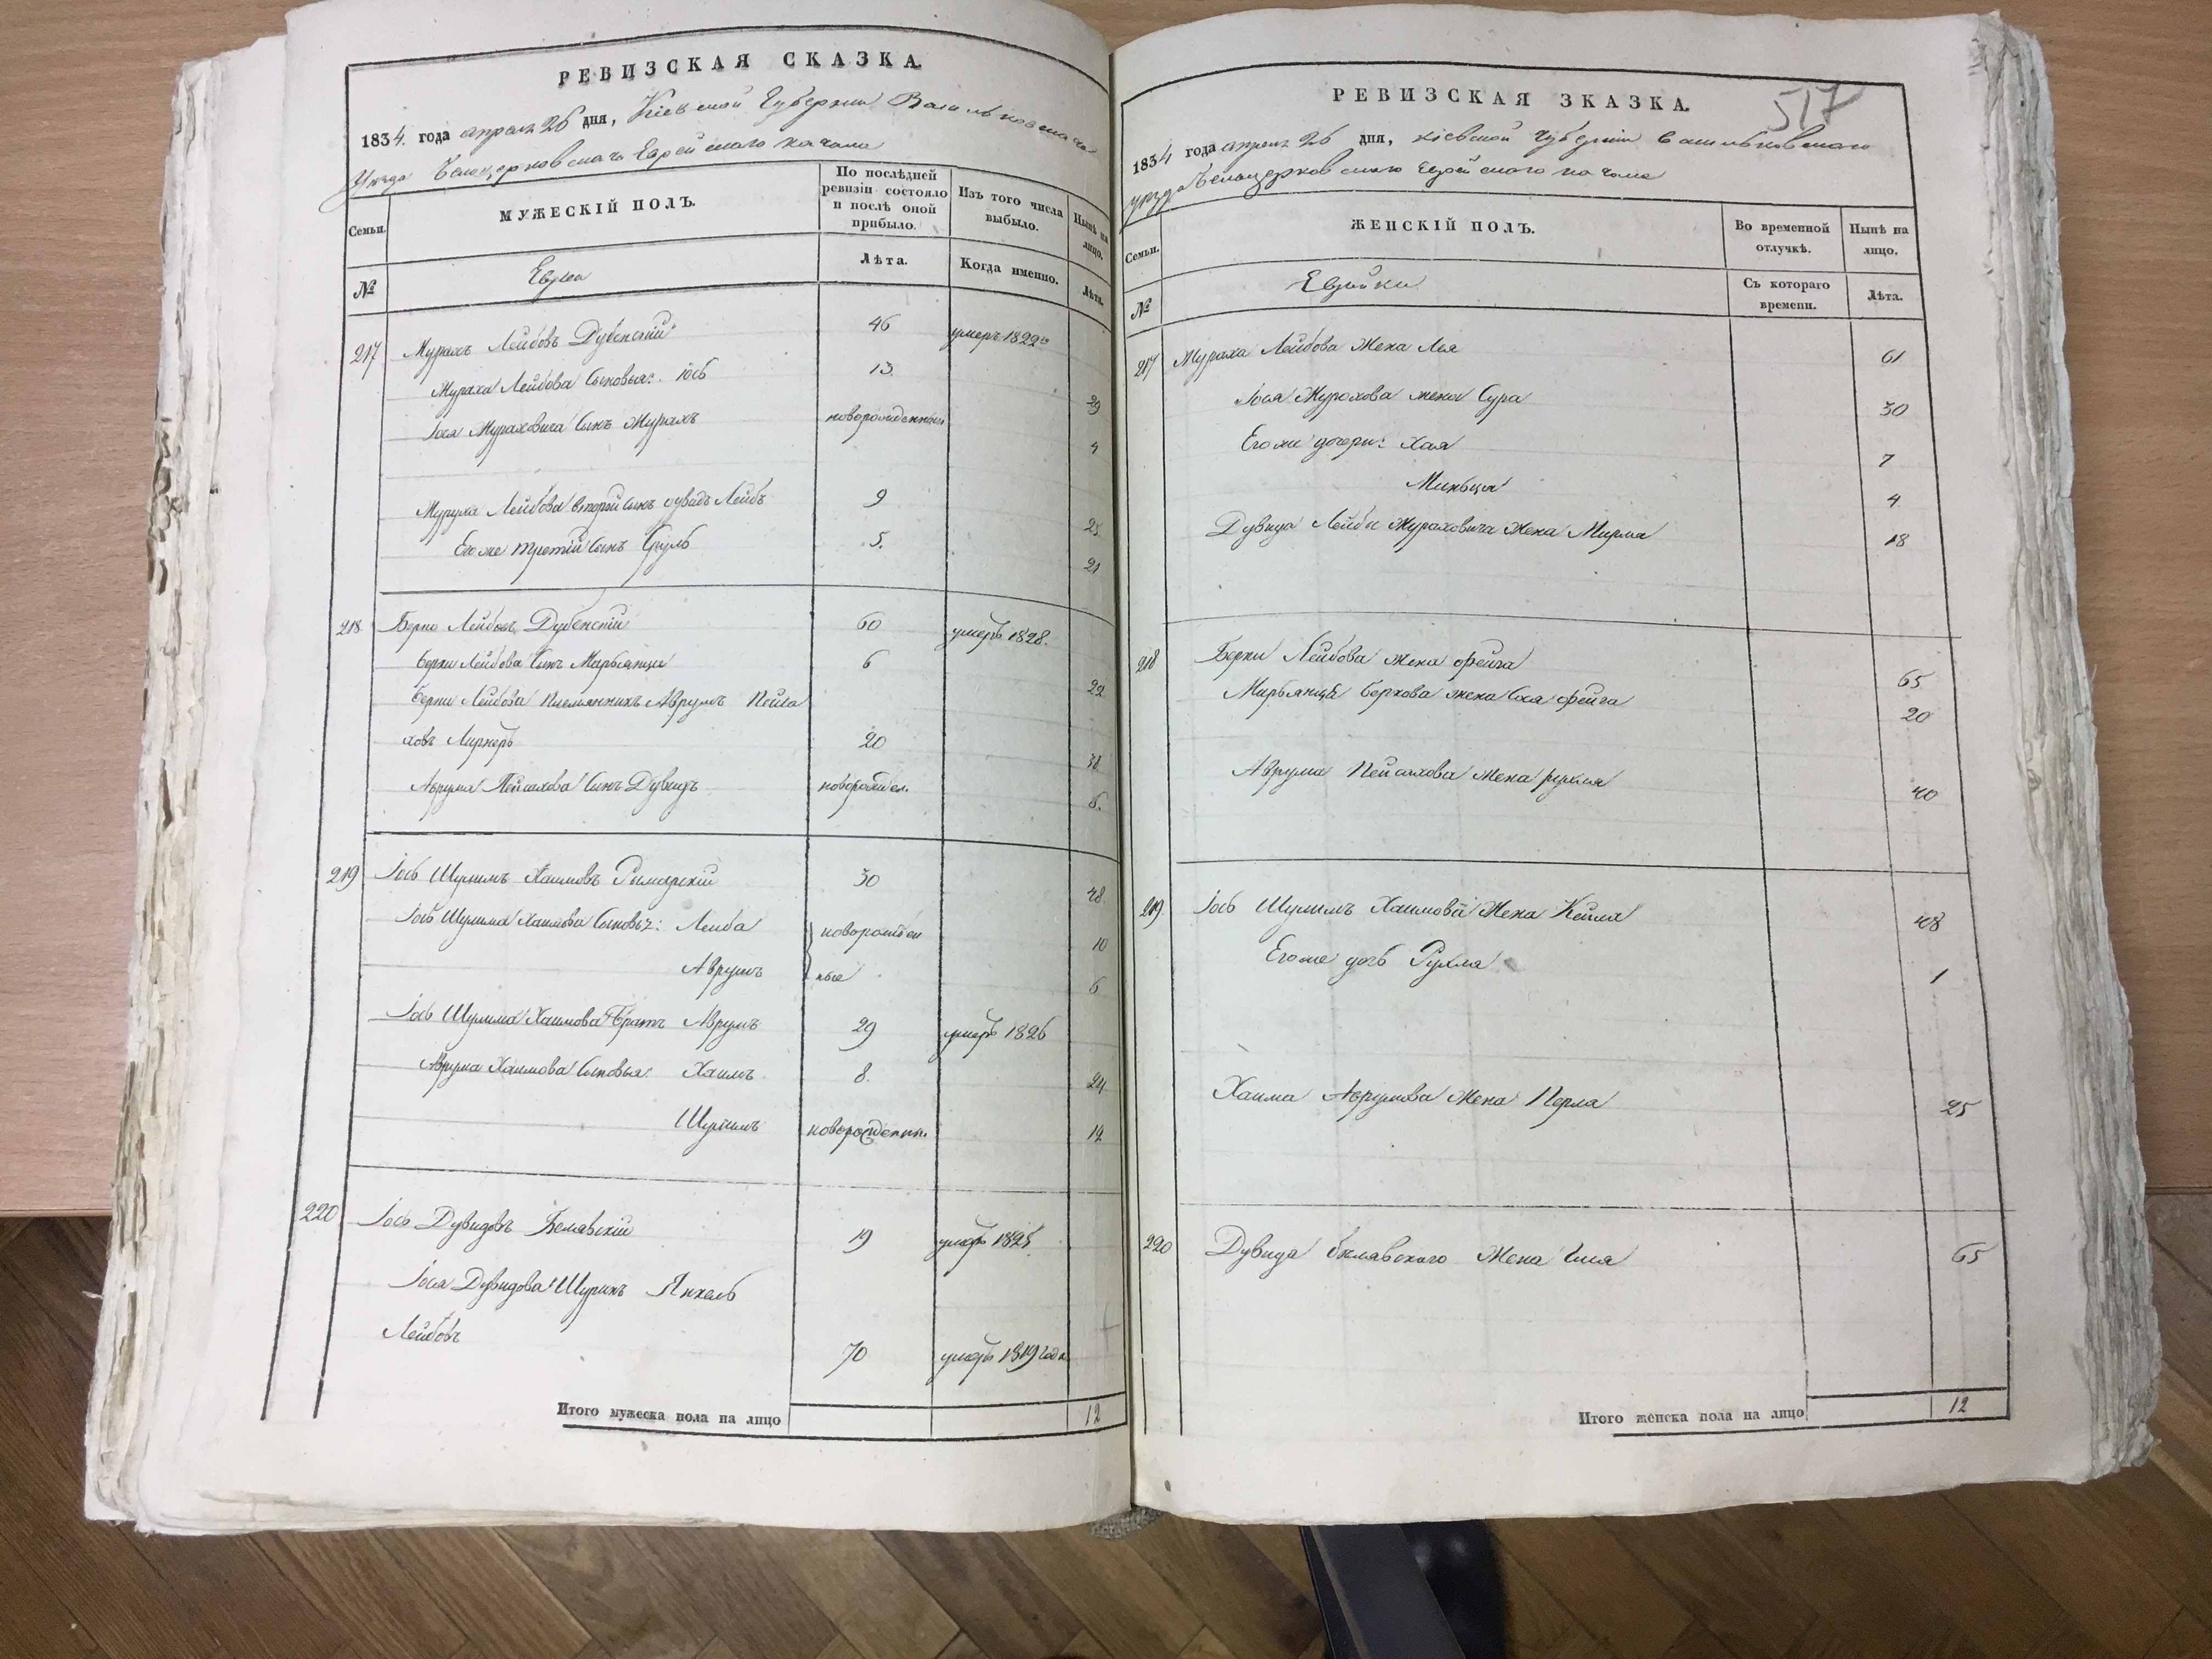 РЕВИЗСКАЯ СКАЗКА.
1834. года апреля 26 дня, Кіевской Губерніи Васильковскаго
Уезда Белоцерковскаго Еврейскаго кагала
Семьи.
МУЖЕСКІЙ ПОЛЪ.
По послѣдней ревизіи состояло и послѣ оной прибыло.
Изъ того числа выбыло.
Нынѣ на лицо.
№
Евреи
Лѣта.
Когда именно.
Лѣта.
217 Мурахъ Лейбовъ Дубенскій 46 умеръ 1822
Мураха Лейбова Сыновья: Іось 13. 29
Іося Мураховича Сынъ Мурахъ новорожденный 4
Мураха Лейбова второй сынъ Дувидъ Лейбъ 9 25
Его же третій Сынъ Сруль 5. 21
218 Берко Лейбовъ Дубенскій 60 умеръ 1828.
Берки Лейбова Сынъ Марьянци 6 22
Берки Лейбова Племянникъ Аврумъ Пейса
ховъ 20 38
Аврума Пейсахова Сынъ Дувидъ новорожден. 6.
219 Іось Шулимъ Хаимовъ Рымарскій 30 48
Іось Шулима Хаимова Сыновья: Лейба новорожден 10
Аврумъ ные 6
Іось Шулима Хаимова Братъ Аврумъ 29 умеръ 1826
Аврума Хаимова Сыновья: Хаимъ 8. 24
Шулимъ новорожденн. 14
220 Іось Дувидовъ Белявскій 19 умеръ 1825
Іося Дувидова Шуринъ Янкель
Лейбовъ
70 умеръ 1819 года
Итого мужеска пола на лицо 12
517
РЕВИЗСКАЯ ЗКАЗКА.
1834 года апреля 26 дня, кіевской Губерніи Васильковскаго
уезда Белоцерковскаго Еврейскаго кагала
Семьи.
ЖЕНСКІЙ ПОЛЪ.
Во временной отлучкѣ.
Нынѣ на лицо.
№
Еврейки
Съ котораго времени.
Лѣта.
217 Мураха Лейбова Жена Лея 61
Іося Мурахова жена Сура 30
Его же дочери: Хая 7
Миньця 4
Дувида Лейбы Мураховича Жена Мирля 18
218 Берки Лейбова жена Фейга 65
Марьянци Беркова жена Фейга 20
Аврума Пейсахова Жена Рухля 40
219. Іось Шулимъ Хаимова Жена Кейла 48
Его же дочь Рухля 1
Хаима Аврумова Жена Перля 25
220 Дувида Белявскаго Жена 65
Итого женска пола на лицо 12